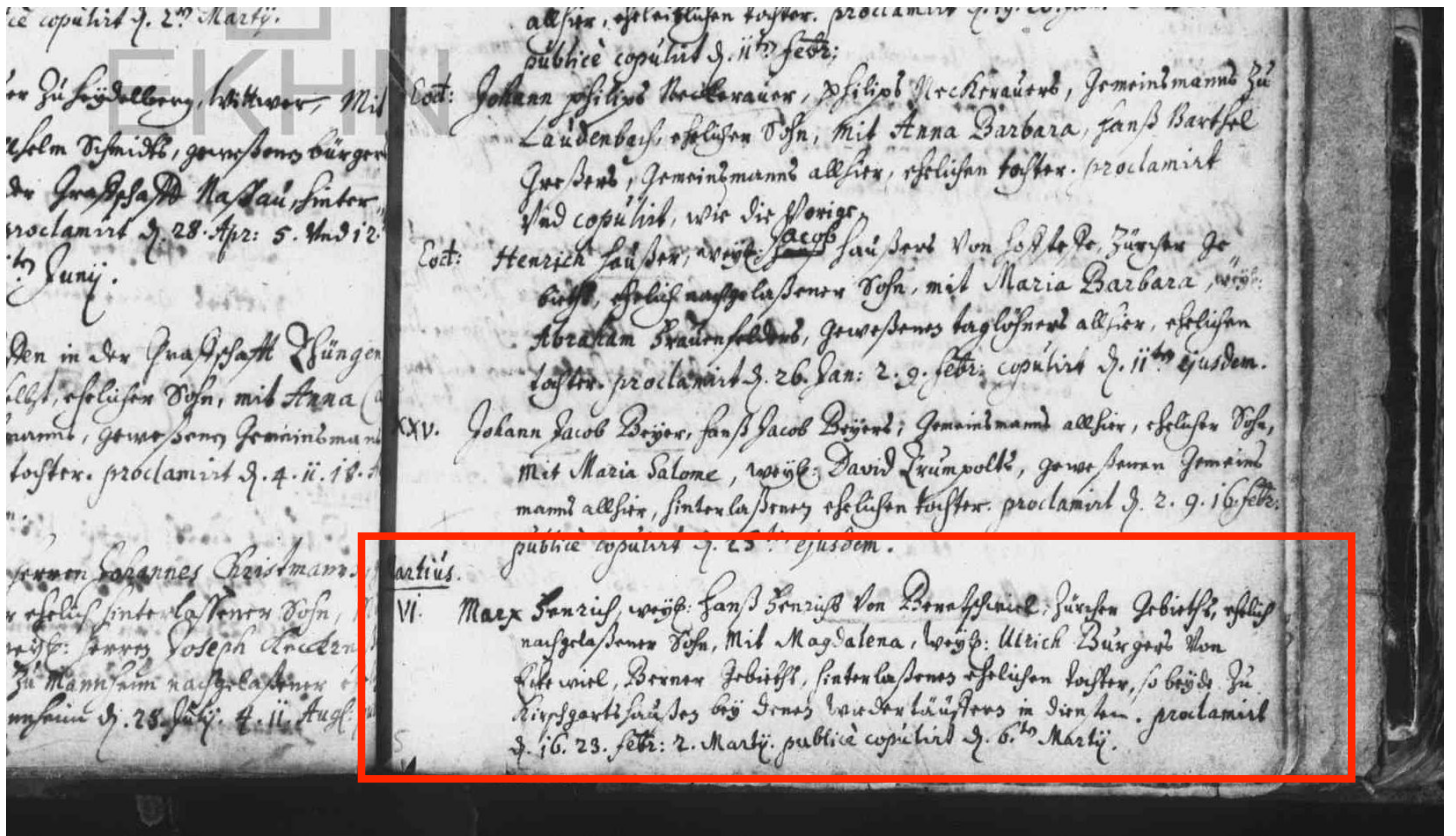 ce copulirt d. 2ten Martÿ.
er Zu Heÿdelberg, Wittwer, Mit
lhelm Schmidts, geweßenen bürgers
der Graffschafft Naßau, hinter„
proclamirt d. 28. Apr: 5. Und 12.
ten Junÿ.
den in der Graffschafft Thüngen
elbst, ehelicher Sohn, mit Anna
manns, geweßenen Gemeinsmans
tochter. proclamirt d. 4. 11. 18.
Herren Johannes Christmann
r ehelich hinterlassener Sohn,
weÿl: Herren Joseph
Zu Mannheim nachgelaßener
nheim d. 28. Julÿ. 4. 11. Aug
EKHN
allhier, eheleiblichen tochter. proclamirt d. 19. 26.
publicè copulirt d. 11ten febr:
Eod: Johann philips Neckerauer, philips Neckerauers, Gemeinsmanns Zu
Laudenbach, ehelicher Sohn, Mit Anna Barbara, Hanß Barthel
Greßers, Gemeinsmanns allhier, ehelichen tochter. proclamirt
Und copulirt, wie die Vorige.
Jacob
Eod: Henrich Haußer, weÿl: Haußers Von Zürcher Ge
bieths, ehelich nachgelaßener Sohn, mit Maria Barbara, weÿl:
Abraham Frauenfelders, geweßenen taglöhners allhier, ehelichen
tochter. proclamirt d. 26. Jan: 2. 9. febr: copulirt d. 11ten ejusdem.
XXV. Johann Jacob Beÿer, Hanß Jacob Beÿers, Gemeinsmanns allhier, ehelicher Sohn,
Mit Maria Salome, weÿl: David Trumpolts, geweßenen Gemeins
manns allhier, hinterlaßenen ehelichen tochter. proclamirt d. 2. 9. 16. febr:
publicè copulirt d. 25ten ejusdem.
artius.
VI. Marx Henrich, weÿl: Hanß Henrichs Von Beretschweil, Zürcher Gebieths, ehelich
nachgelaßener Sohn, Mit Magdalena, weÿl: Ulrich Burgers Von
Ekewiel, Berner Gebieths, hinterlaßenen ehelichen tochter, so beÿde Zu
Kirschgartshaußen beÿ denen wiedertäuffern in diensten. proclamirt
d. 16. 23. febr: 2. Martÿ. publicè copulirt d. 6.ten Martÿ.